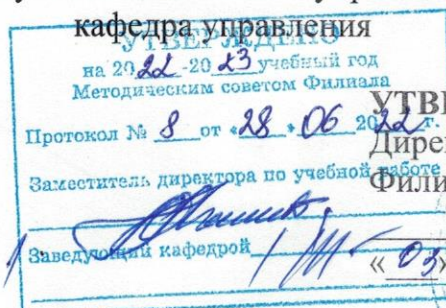 кафедра управления
УТВЕРЖДЕНО
на 2022-2023 учебный год
Методическим советом Филиала
УТВЕ
Протокол № 8 от «28» 06 2022 г.
Дирек
Заместитель директора по учебной работе
Филиа
Заведующий кафедрой
«03»